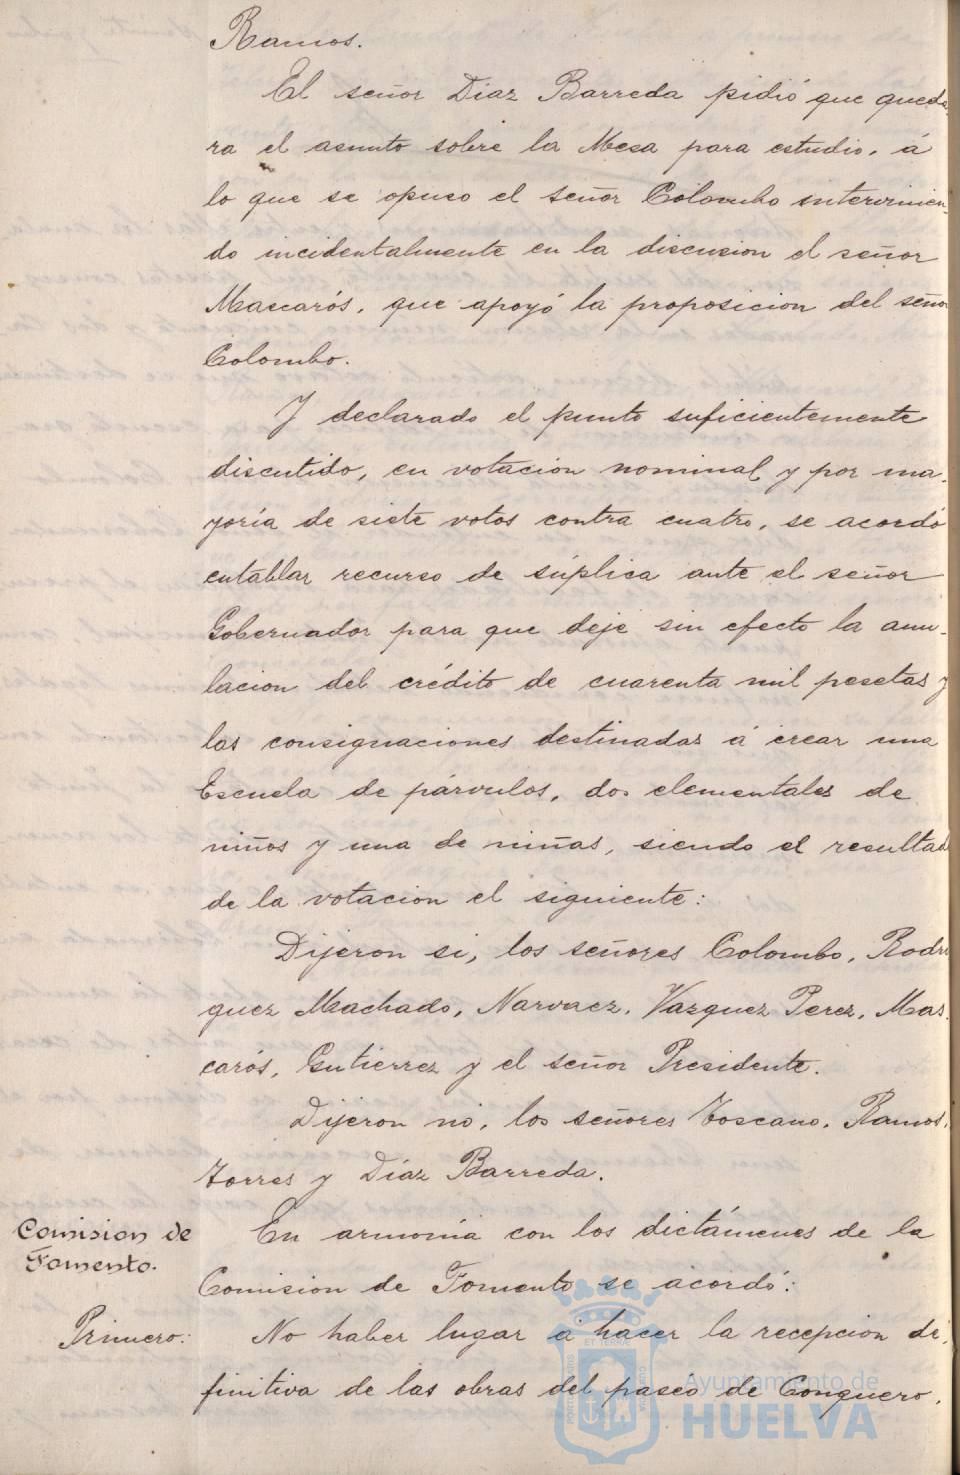 Ramos.
El señor Díaz Barreda pidió que queda-
ra el asunto sobre la Mesa para estudio, á
lo que se opuso el señor Colombo intervinien-
do incidentalmente en la discusion el señor
Mascarós, que apoyó la proposicion del señor
Colombo.
Y declarado el punto suficientemente
discutido, en votacion nominal y por ma-
yoría de siete votos contra cuatro, se acordó
entablar recurso de súplica ante el señor
Gobernador para que deje sin efecto la anu-
lacion del crédito de cuarenta mil pesetas y
las consignaciones destinadas á crear una
Escuela de párvulos, dos elementales de
niños y una de niñas, siendo el resultado
de la votacion el siguiente:
Dijeron si, los señores Colombo, Rodri
guez Machado, Narvaez, Vazquez Perez, Mas-
carós, Gutierrez y el señor Presidente.
Dijeron no, los señores Toscano, Ramos,
Torres y Díaz Barreda.
Comision de
Fomento.
En armonía con los dictámenes de la
Comision de Fomento se acordó:
Primero:
No haber lugar á hacer la recepcion de-
finitiva de las obras del paseo de Conquero,
Ayuntamiento de
HUELVA